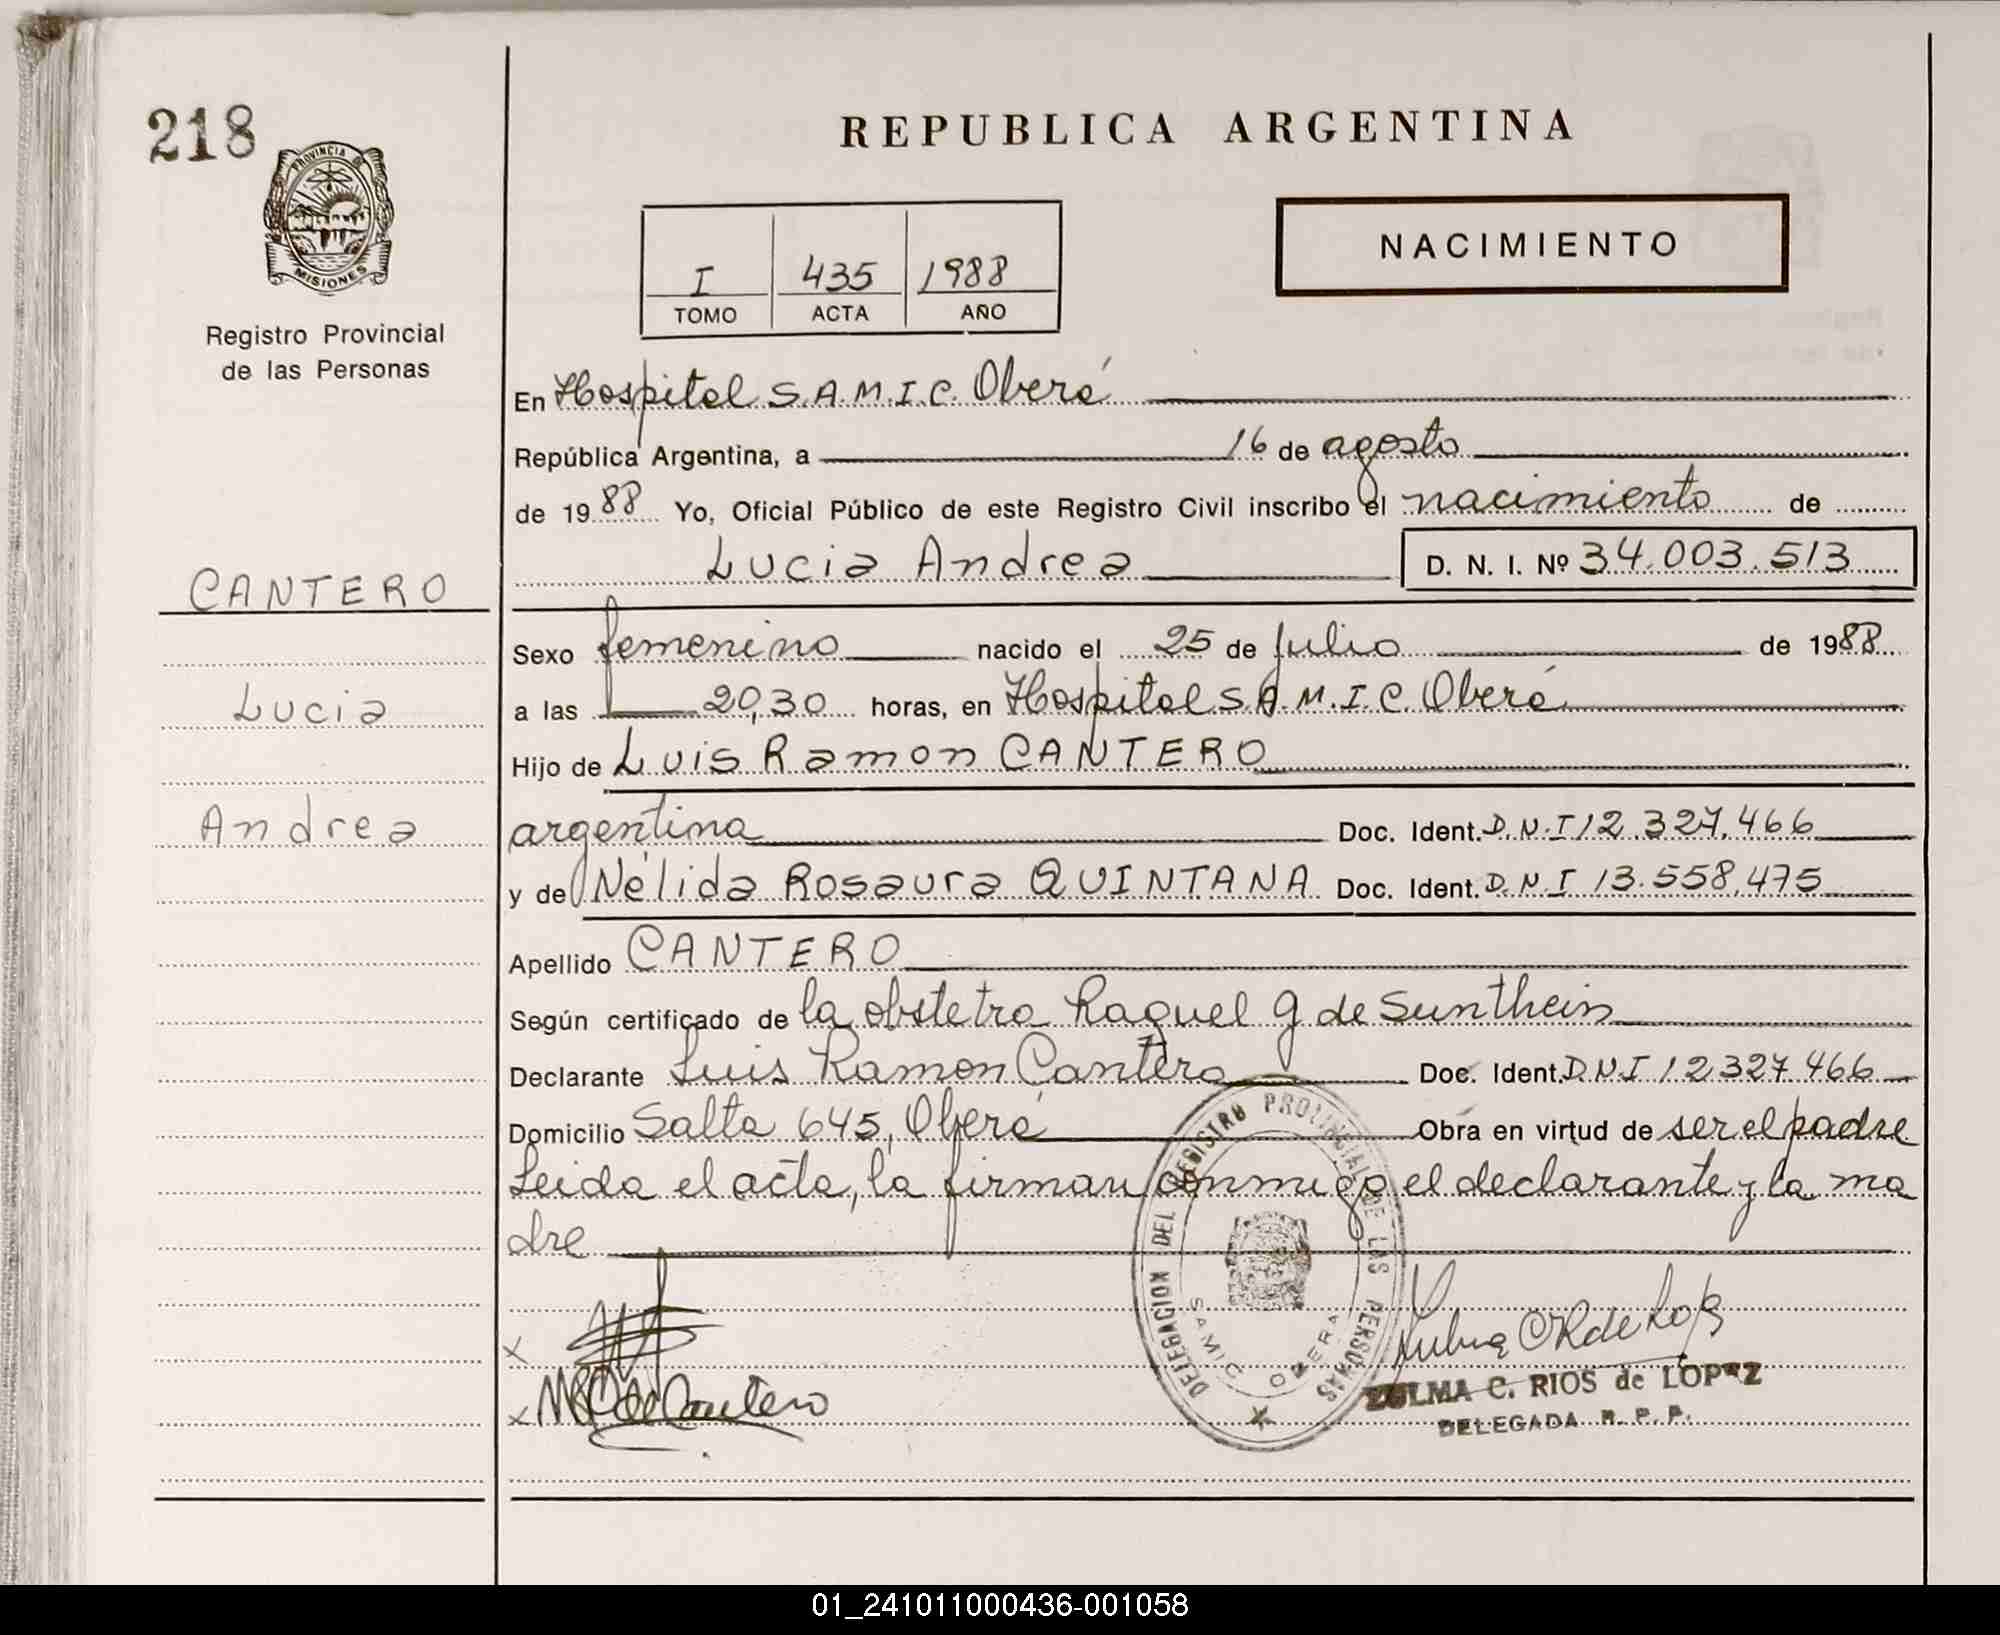 218
REPUBLICA ARGENTINA
PROVINCIA DE
MISIONES
Registro Provincial
de las Personas
I 435 1988
TOMO ACTA AÑO
NACIMIENTO
En Hospital S.A.M.I.C. Oberá
República Argentina, a 16 de agosto
de 1988 Yo, Oficial Público de este Registro Civil inscribo el nacimiento de
Lucia Andrea D. N. I. Nº 34.003.513
CANTERO
Lucia
Andrea
Sexo femenino nacido el 25 de julio de 1988
a las 20,30 horas, en Hospital S.A.M.I.C. Oberá
Hijo de Luis Ramon CANTERO
argentina Doc. Ident. D.N.I 12.327.466
y de Nélida Rosaura QUINTANA Doc. Ident. D.N.I 13.558.475
Apellido CANTERO
Según certificado de la obstetra Raquel G de Sunthein
Declarante Luis Ramon Cantero Doc. Ident. D.N.I 12.327.466
Domicilio Salta 645, Oberá Obra en virtud de ser el padre
Leida el acta, la firman conmigo el declarante y la ma
dre
DELEGACION DEL REGISTRO PROVINCIAL DE LAS PERSONAS
SAMIC OBERA
x
x
de Cantero
ZULMA C. RIOS de LOPEZ
DELEGADA R. P. P.
01_241011000436-001058